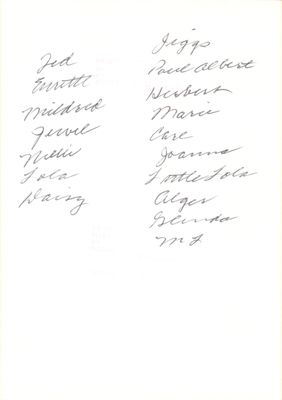 Ted
Evrett
Mildred
Jewel
Nellie
Lola
Daisy
Jiggs
Paul Albert
Herbert
Marie
Carl
Joanna
Little Lola
Alger
Glenda